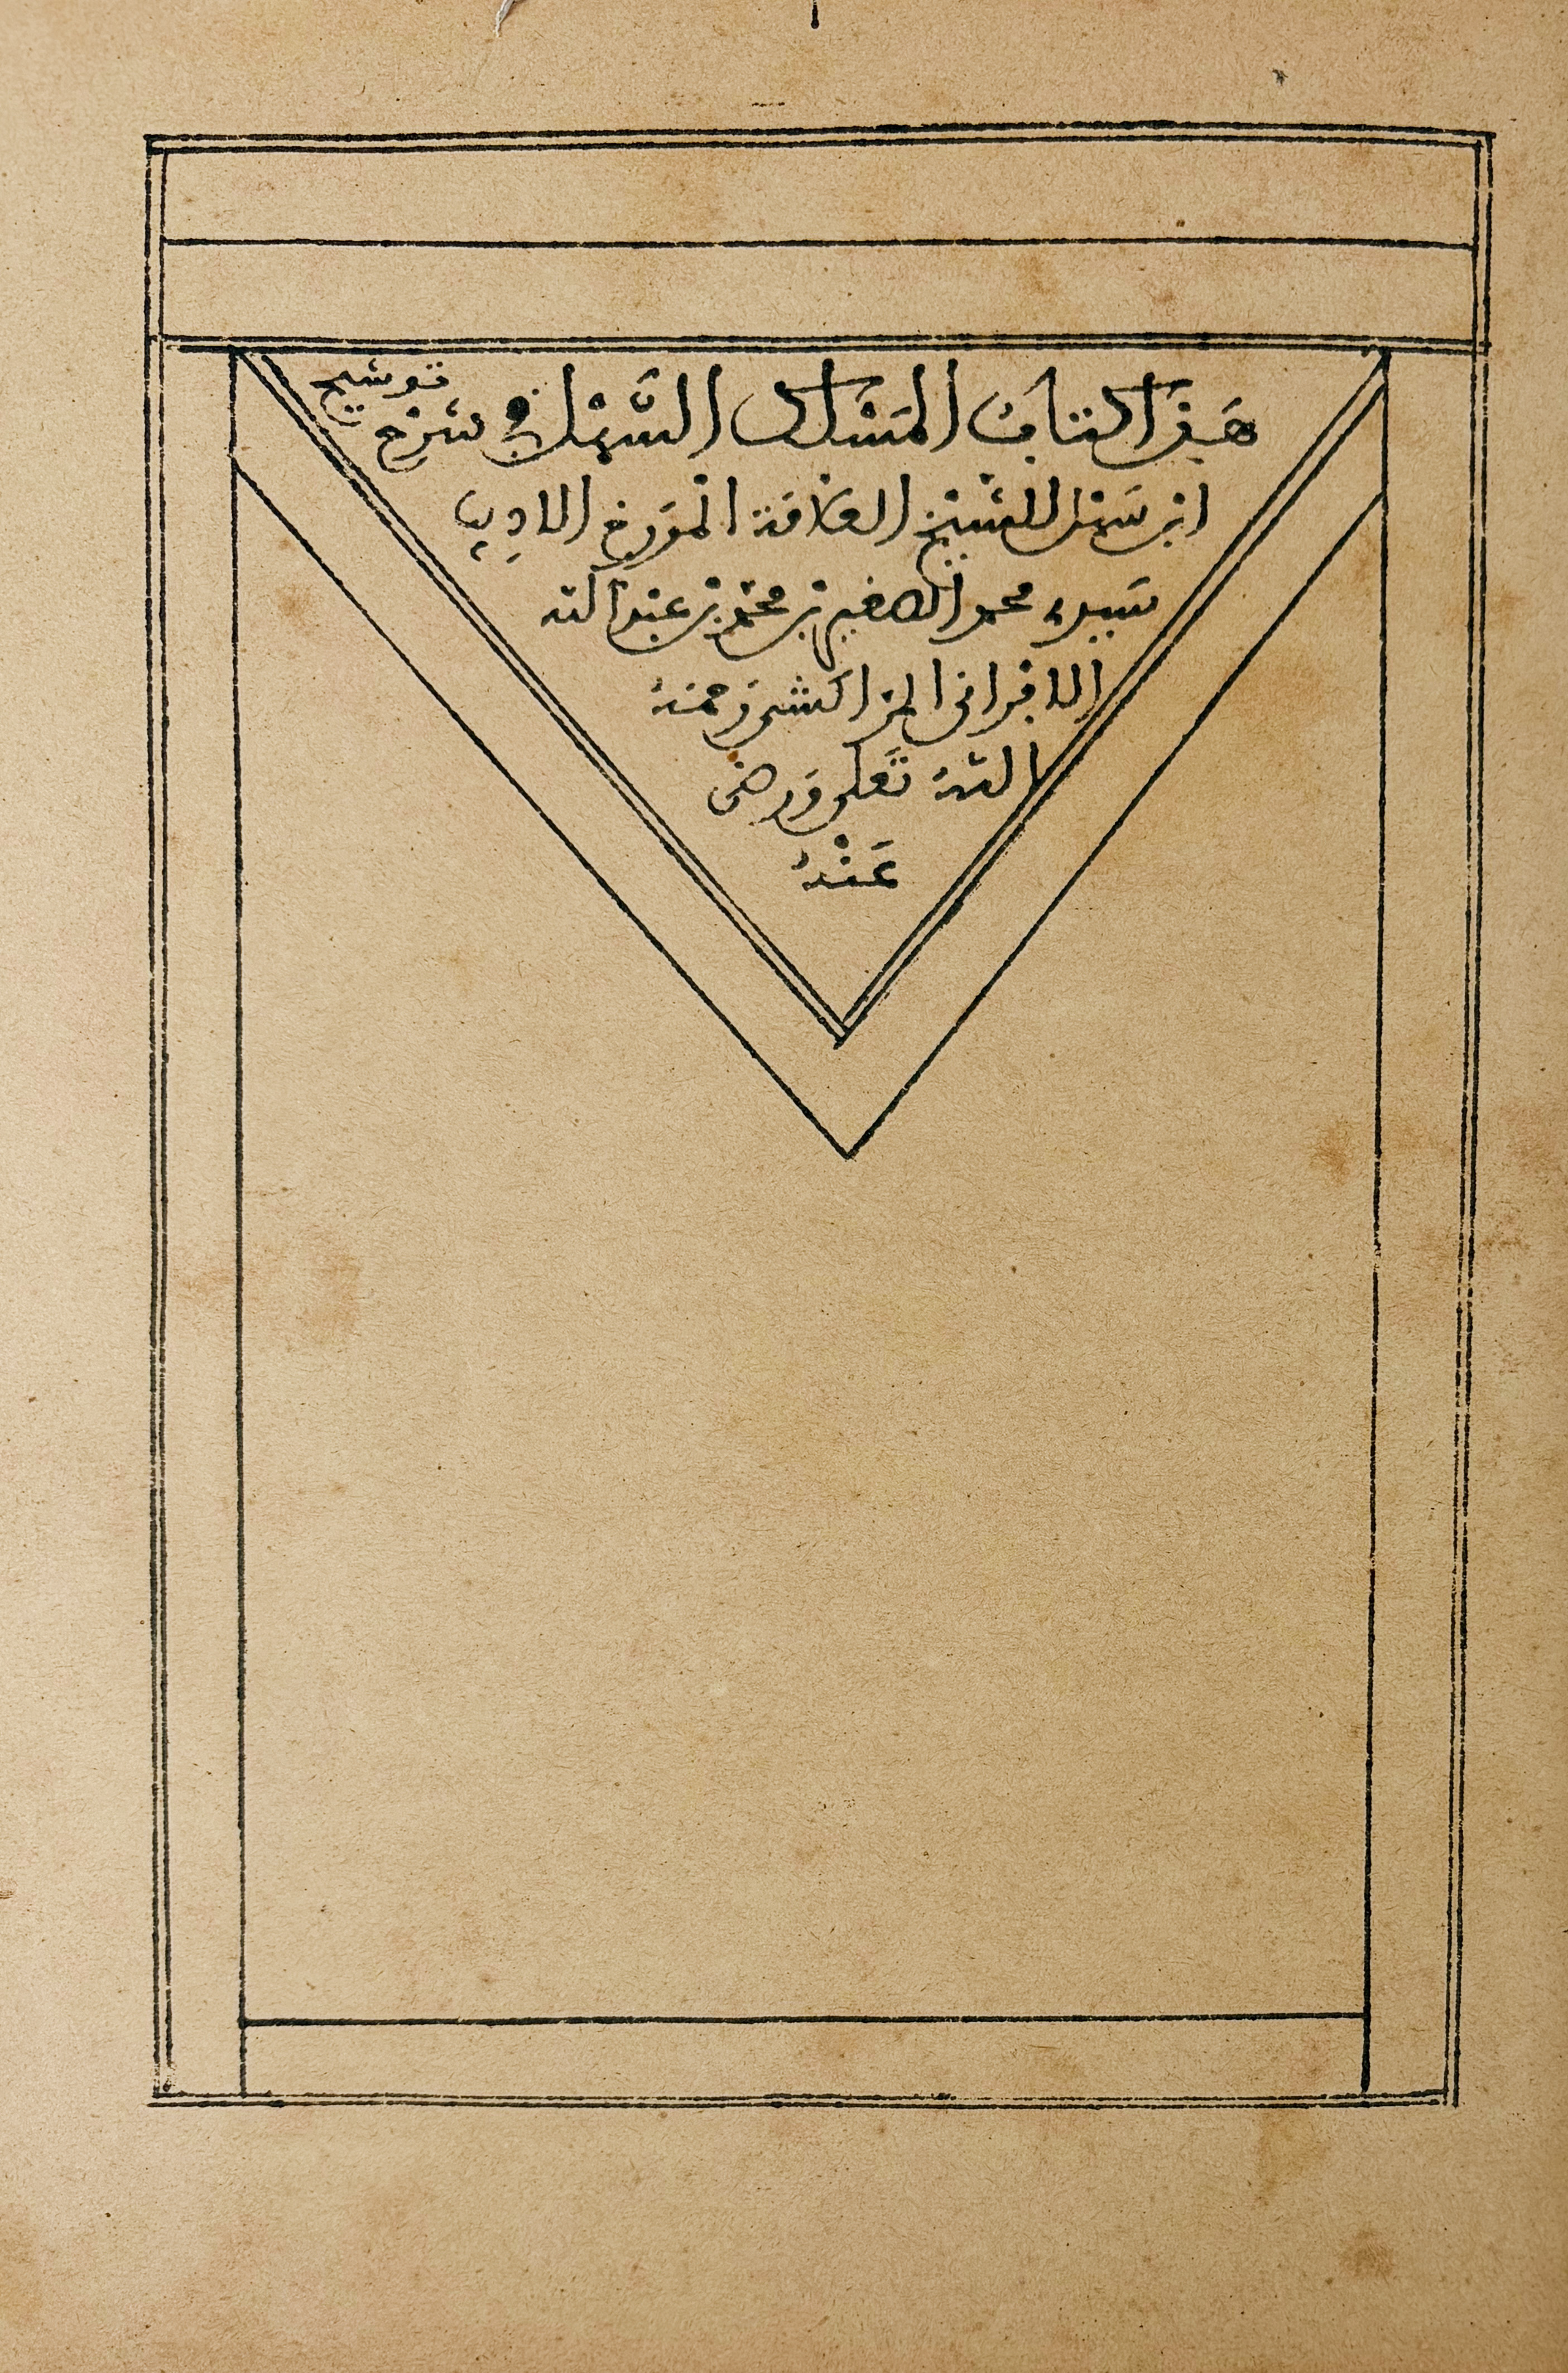 هذا كتاب المسلك السهل في شرح توشيح
ابن سهل للشيخ العلامة المؤرخ الاديب
سيدي محمد الصغير بن محمد بن عبد الله
الافراني المراكشي رحمه
الله تعلى ورضي
عنه